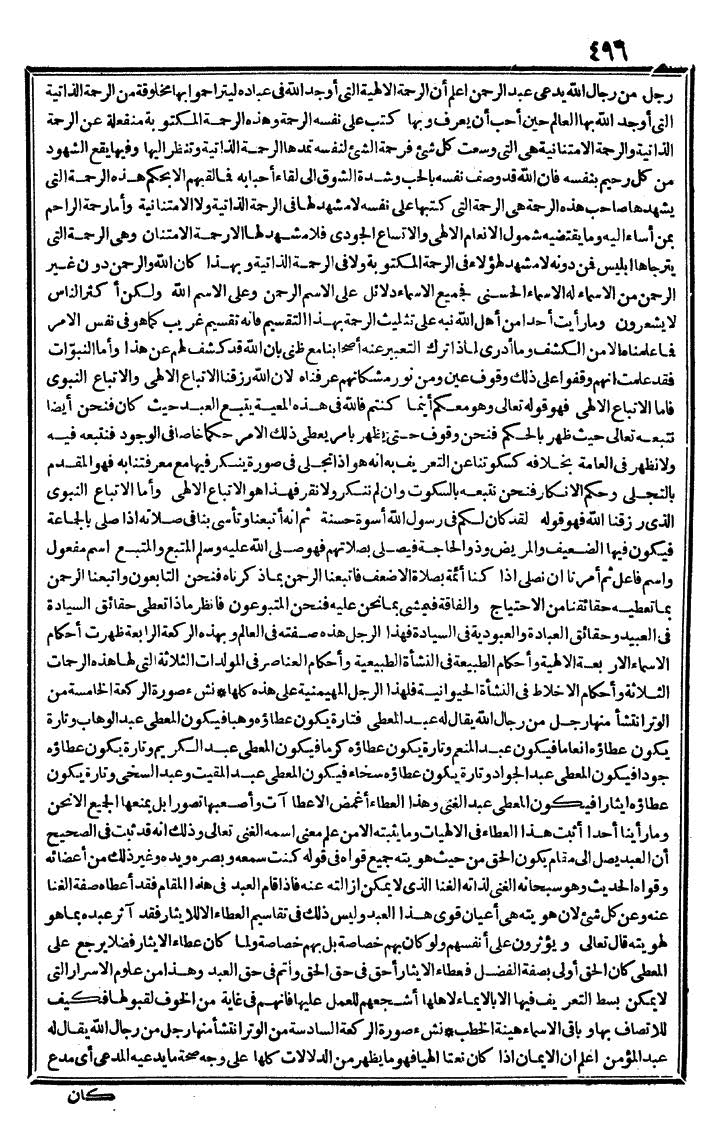 ٤٩٦
رجل من رجال الله يدعى عبد الرحمن اعلم أن الرحمة الالهية التى أوجد الله فى عباده ليتراحموا بها مخلوقة من الرحمة الذاتية
التى أوجد الله بها العالم حين أحب أن يعرف وبها كتب على نفسه الرحمة وهذه الرحمة المكتوبة منفعلة عن الرحمة
الذاتية والرحمة الامتنانية هى التى وسعت كل شئ فرحمة الشئ لنفسه تمدها الرحمة الذاتية وتنظر اليها وفيها يقع الشهود
من كل رحيم بنفسه فان الله قد وصف نفسه بالحب وشدة الشوق الى لقاء أحبابه فما لقيهم الا بحكم هذه الرحمة التى
يشهدها صاحب هذه الرحمة هى الرحمة التى كتبها على نفسه لا مشهد لها فى الرحمة الذاتية ولا الامتنانية وأما رحمة الراحم
بمن أساء اليه وما يقتضيه شمول الانعام الالهى والاتساع الجودى فلا مشهد لها الا رحمة الامتنان وهى الرحمة التى
يترجاها ابليس فمن دونه لا مشهد لهؤلاء فى الرحمة المكتوبة ولا فى الرحمة الذاتية وبهذا كان الله والرحمن دون غير
الرحمن من الاسماء له الاسماء الحسنى فجميع الاسماء دلائل على الاسم الرحمن وعلى الاسم الله ولكن أكثر الناس
لا يشعرون وما رأيت أحدا من أهل الله نبه على تثليث الرحمة بهذا التقسيم فانه تقسيم غريب كما هو فى نفس الامر
فما علمناه الا من الكشف وما أدرى لماذا ترك التعبير عنه أصحابنا مع ظنى بان الله قد كشف لهم عن هذا وأما النبوّات
فقد علمت انهم وقفوا على ذلك وقوف عين ومن نور مشكاتهم عرفناه لان الله رزقنا الاتباع الالهى والاتباع النبوى
فاما الاتباع الالهى فهو قوله تعالى وهو معكم أينما كنتم فالله فى هذه المعية يتبع العبد حيث كان فنحن أيضا
نتبعه تعالى حيث ظهر بالحكم فنحن وقوف حتى يظهر بامر يعطى ذلك الامر حكما خاصا فى الوجود فنتبعه فيه
ولا نظهر فى العامة بخلافه كسكوتنا عن التعريف به انه هو اذا تجلى فى صورة ينكر فيها مع معرفتنا به فهو المقدم
بالتجلى وحكم الانكار فنحن نتبعه بالسكوت وان لم ننكر ولا نقر فهذا هو الاتباع الالهى وأما الاتباع النبوى
الذى رزقنا الله فهو قوله لقد كان لكم فى رسول الله أسوة حسنة ثم انه أتبعنا وتأسى بنا فى صلاته اذا صلى بالجماعة
فيكون فيها الضعيف والمريض وذو الحاجة فيصلى بصلاتهم فهو صلى الله عليه وسلم المتبع والمتبع اسم مفعول
واسم فاعل ثم أمرنا ان نصلى اذا كنا أئمة بصلاة الاضعف فاتبعنا الرحمن بما ذكرناه فنحن التابعون واتبعنا الرحمن
بما تعطيه حقائقنا من الاحتياج والفاقة فيمشى بما نحن عليه فنحن المتبوعون فانظر ماذا تعطى حقائق السيادة
فى العبيد وحقائق العبادة والعبودية فى السيادة فهذا الرجل هذه صفته فى العالم وبهذه الركعة الرابعة ظهرت أحكام
الاسماء الاربعة الالهية وأحكام الطبيعة فى النشأة الطبيعية وأحكام العناصر فى المولدات الثلاثة التى لها هذه الرحمات
الثلاثة وأحكام الاخلاط فى النشأة الحيوانية فلهذا الرجل المهيمنية على هذه كلها * نشء صورة الركعة الخامسة من
الوتر انتشأ منها رجل من رجال الله يقال له عبد المعطى فتارة يكون عطاؤه وهبا فيكون المعطى عبد الوهاب وتارة
يكون عطاؤه انعاما فيكون عبد المنعم وتارة يكون عطاؤه كرما فيكون المعطى عبد الكريم وتارة يكون عطاؤه
جودا فيكون المعطى عبد الجواد وتارة يكون عطاؤه سخاء فيكون المعطى عبد المقيت وعبد السخى وتارة يكون
عطاؤه ايثارا فيكون المعطى عبد الغنى وهذا العطاء أغمض الاعطاآت وأصعبها تصورا بل يمنعها الجميع الا نحن
وما رأينا أحدا أثبت هذا العطاء فى الالهيات وما يثبته الا من علم معنى اسمه الغنى تعالى وذلك انه قد ثبت فى الصحيح
أن العبد يصل الى مقام يكون الحق من حيث هويته جميع قواه فى قوله كنت سمعه وبصره ويده وغير ذلك من أعضائه
وقواه الحديث وهو سبحانه الغنى لذاته الغنا الذى لا يمكن ازالته عنه فاذا قام العبد فى هذا المقام فقد أعطاه صفة الغنا
عنه وعن كل شئ لان هويته هى أعيان قوى هذا العبد وليس ذلك فى تقاسيم العطاء الا للايثار فقد آثر عبده بما هو
لهويته قال تعالى ويؤثرون على أنفسهم ولو كان بهم خصاصة بل بهم خصاصة ولما كان عطاء الايثار فضلا يرجع على
المعطى كان الحق أولى بصفة الفضل فعطاء الايثار أحق فى حق الحق وأتم فى حق العبد وهذا من علوم الاسرار التى
لا يمكن بسط التعريف فيها الا بالايماء لاهلها أشجعهم للعمل عليها فانهم فى غاية من الخوف لقبولها فكيف
للاتصاف بها وباقى الاسماء هينة الخطب * نشء صورة الركعة السادسة من الوتر انتشأ منها رجل من رجال الله يقال له
عبد المؤمن اعلم ان الايمان اذا كان نعتا الهيا فهو ما يظهر من الدلالات كلها على وجه صحة ما يدعيه المدعى أى مدع
كان